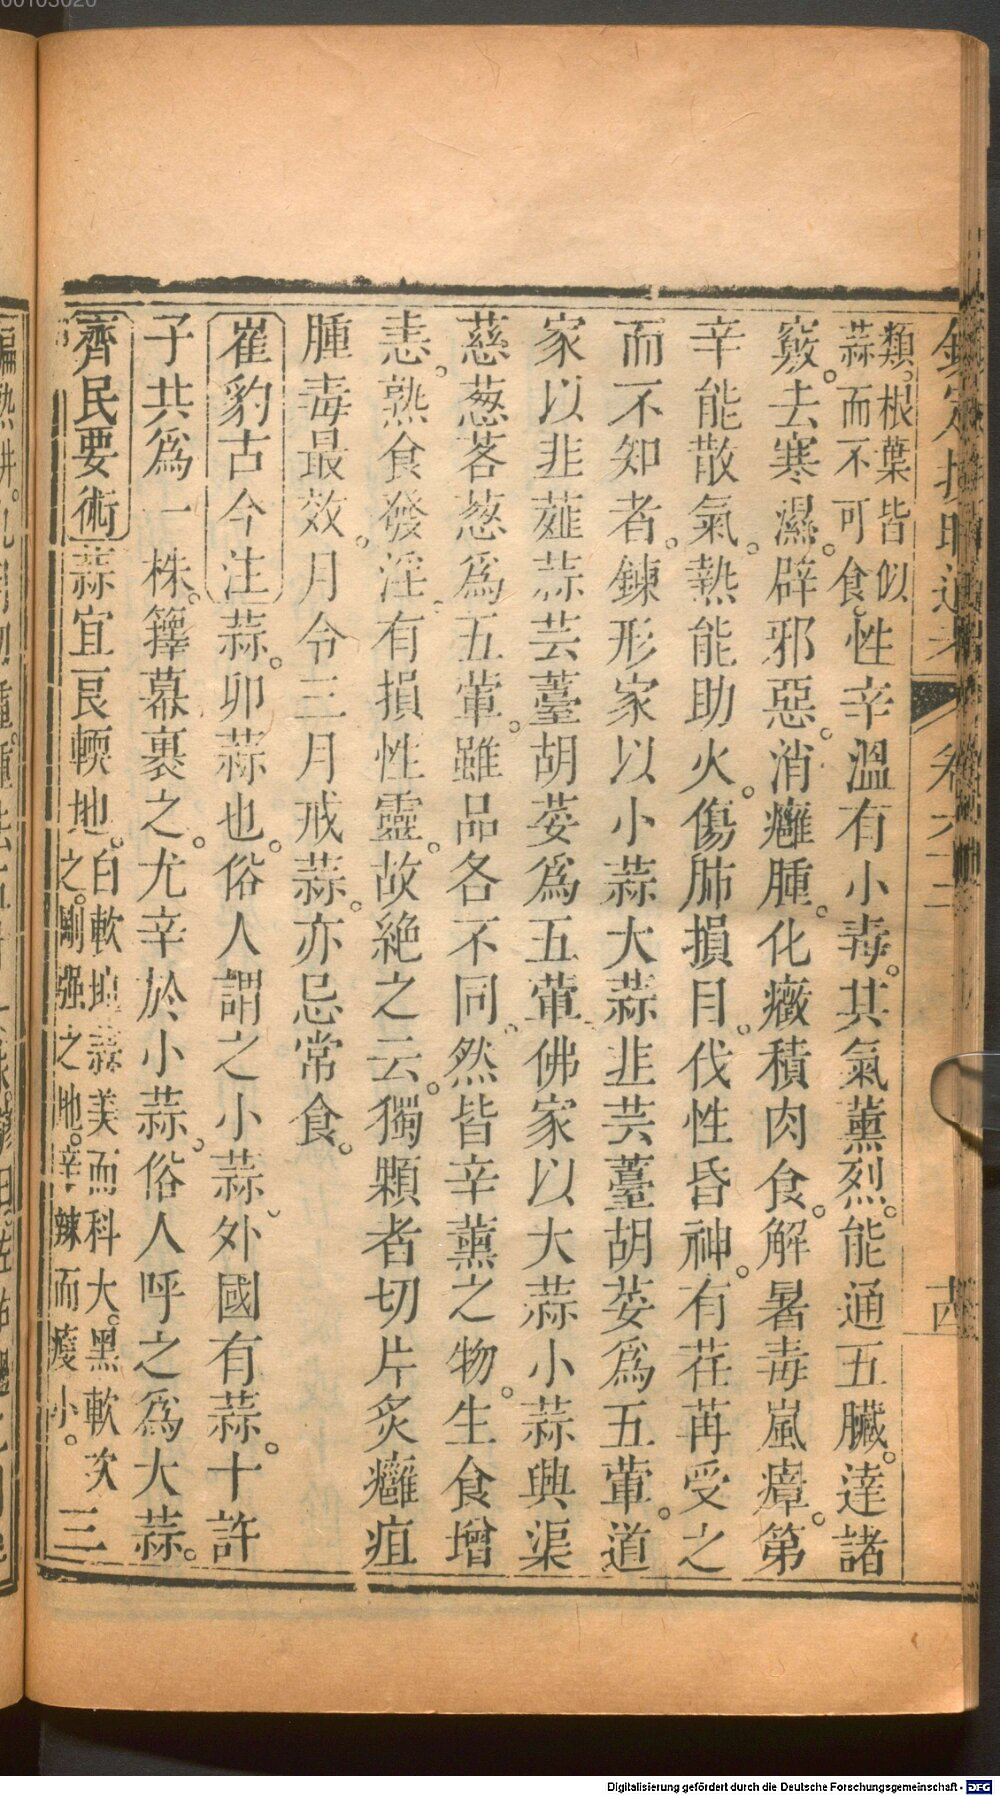 類。根葉皆似
蒜而不可食。
性辛溫有小毒。其氣薰烈。能通五臟。達諸
竅。去寒濕。辟邪惡。消癰腫。化癥積肉食。解暑毒嵐瘴。第
辛能散氣。熱能助火。傷肺損目。伐性昏神。有荏苒受之
而不知者。鍊形家以小蒜大蒜韭芸薹胡荽爲五葷。道
家以韭薤蒜芸薹胡荽爲五葷佛家以大蒜小蒜興渠
慈葱茖葱爲五葷。雖品各不同。然皆辛薰之物。生食增
恚。熟食發淫。有損性靈。故絶之云。獨顆者切片炙癰疽
腫毒最效。月令三月戒蒜。亦忌常食。
崔豹古今注蒜。卯蒜也。俗人謂之小蒜。外國有蒜。十許
子共爲一株。籜幕裹之。尤辛於小蒜。俗人呼之爲大蒜。
齊民要術蒜宜良輭地。
白軟地蒜美而科大。黑軟次
之。剛强之地。辛辣而瘦小。
三
卷六十二
Digitalisierung gefördert durch die Deutsche Forschungsgemeinschaft - DFG